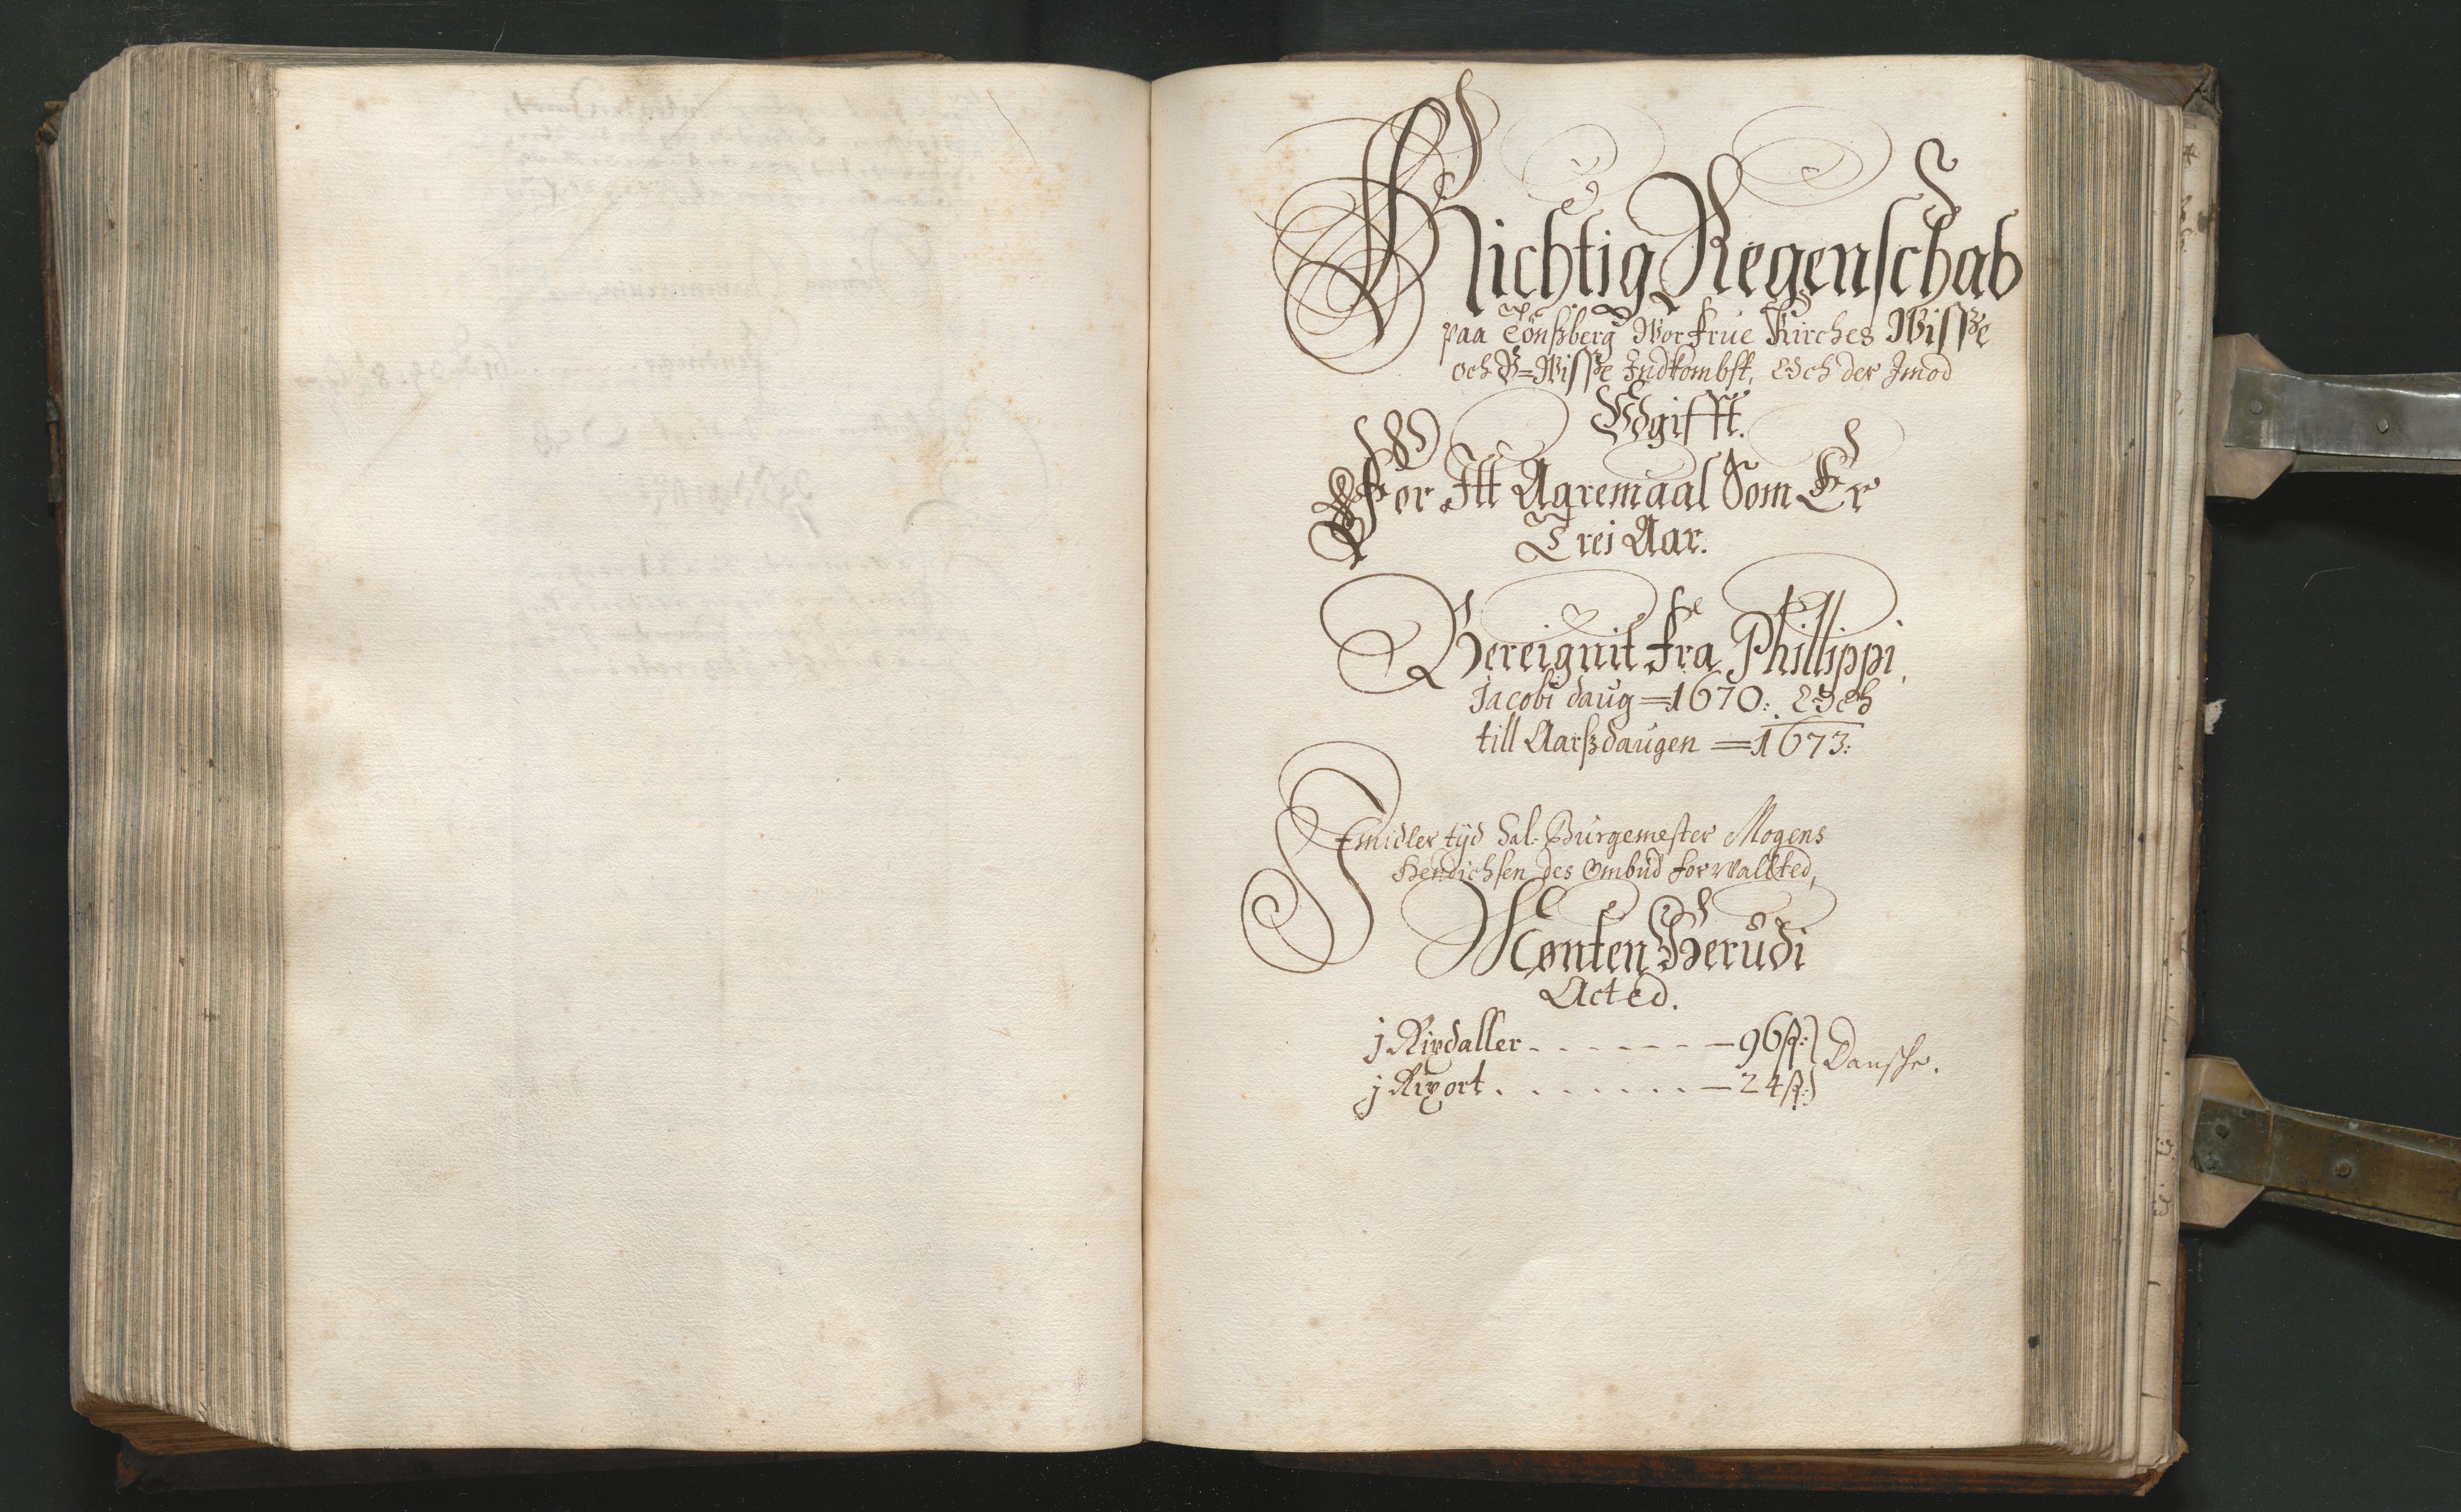 Richtig Regenschab
paa Tönßberg Wor Frue Kirches Wisße
och U=Wisße Indkombst, Och der Imod
Udgifft.
For Itt Agremaal Som Er
Trei Aar.
Bereignit fra Phillippi,
Jacobi daug = 1670: Och
till Aarßdaugen = 1673:
Imidler tÿd Sal: Burgemester Mogens
Hendichsen des Ombud forwallted,
Mønten Herudi
Acted.
j Rixdaller - - - - - - - 96 ß:
Dansche.
j Rixort . . . . . . . - 24 ß: